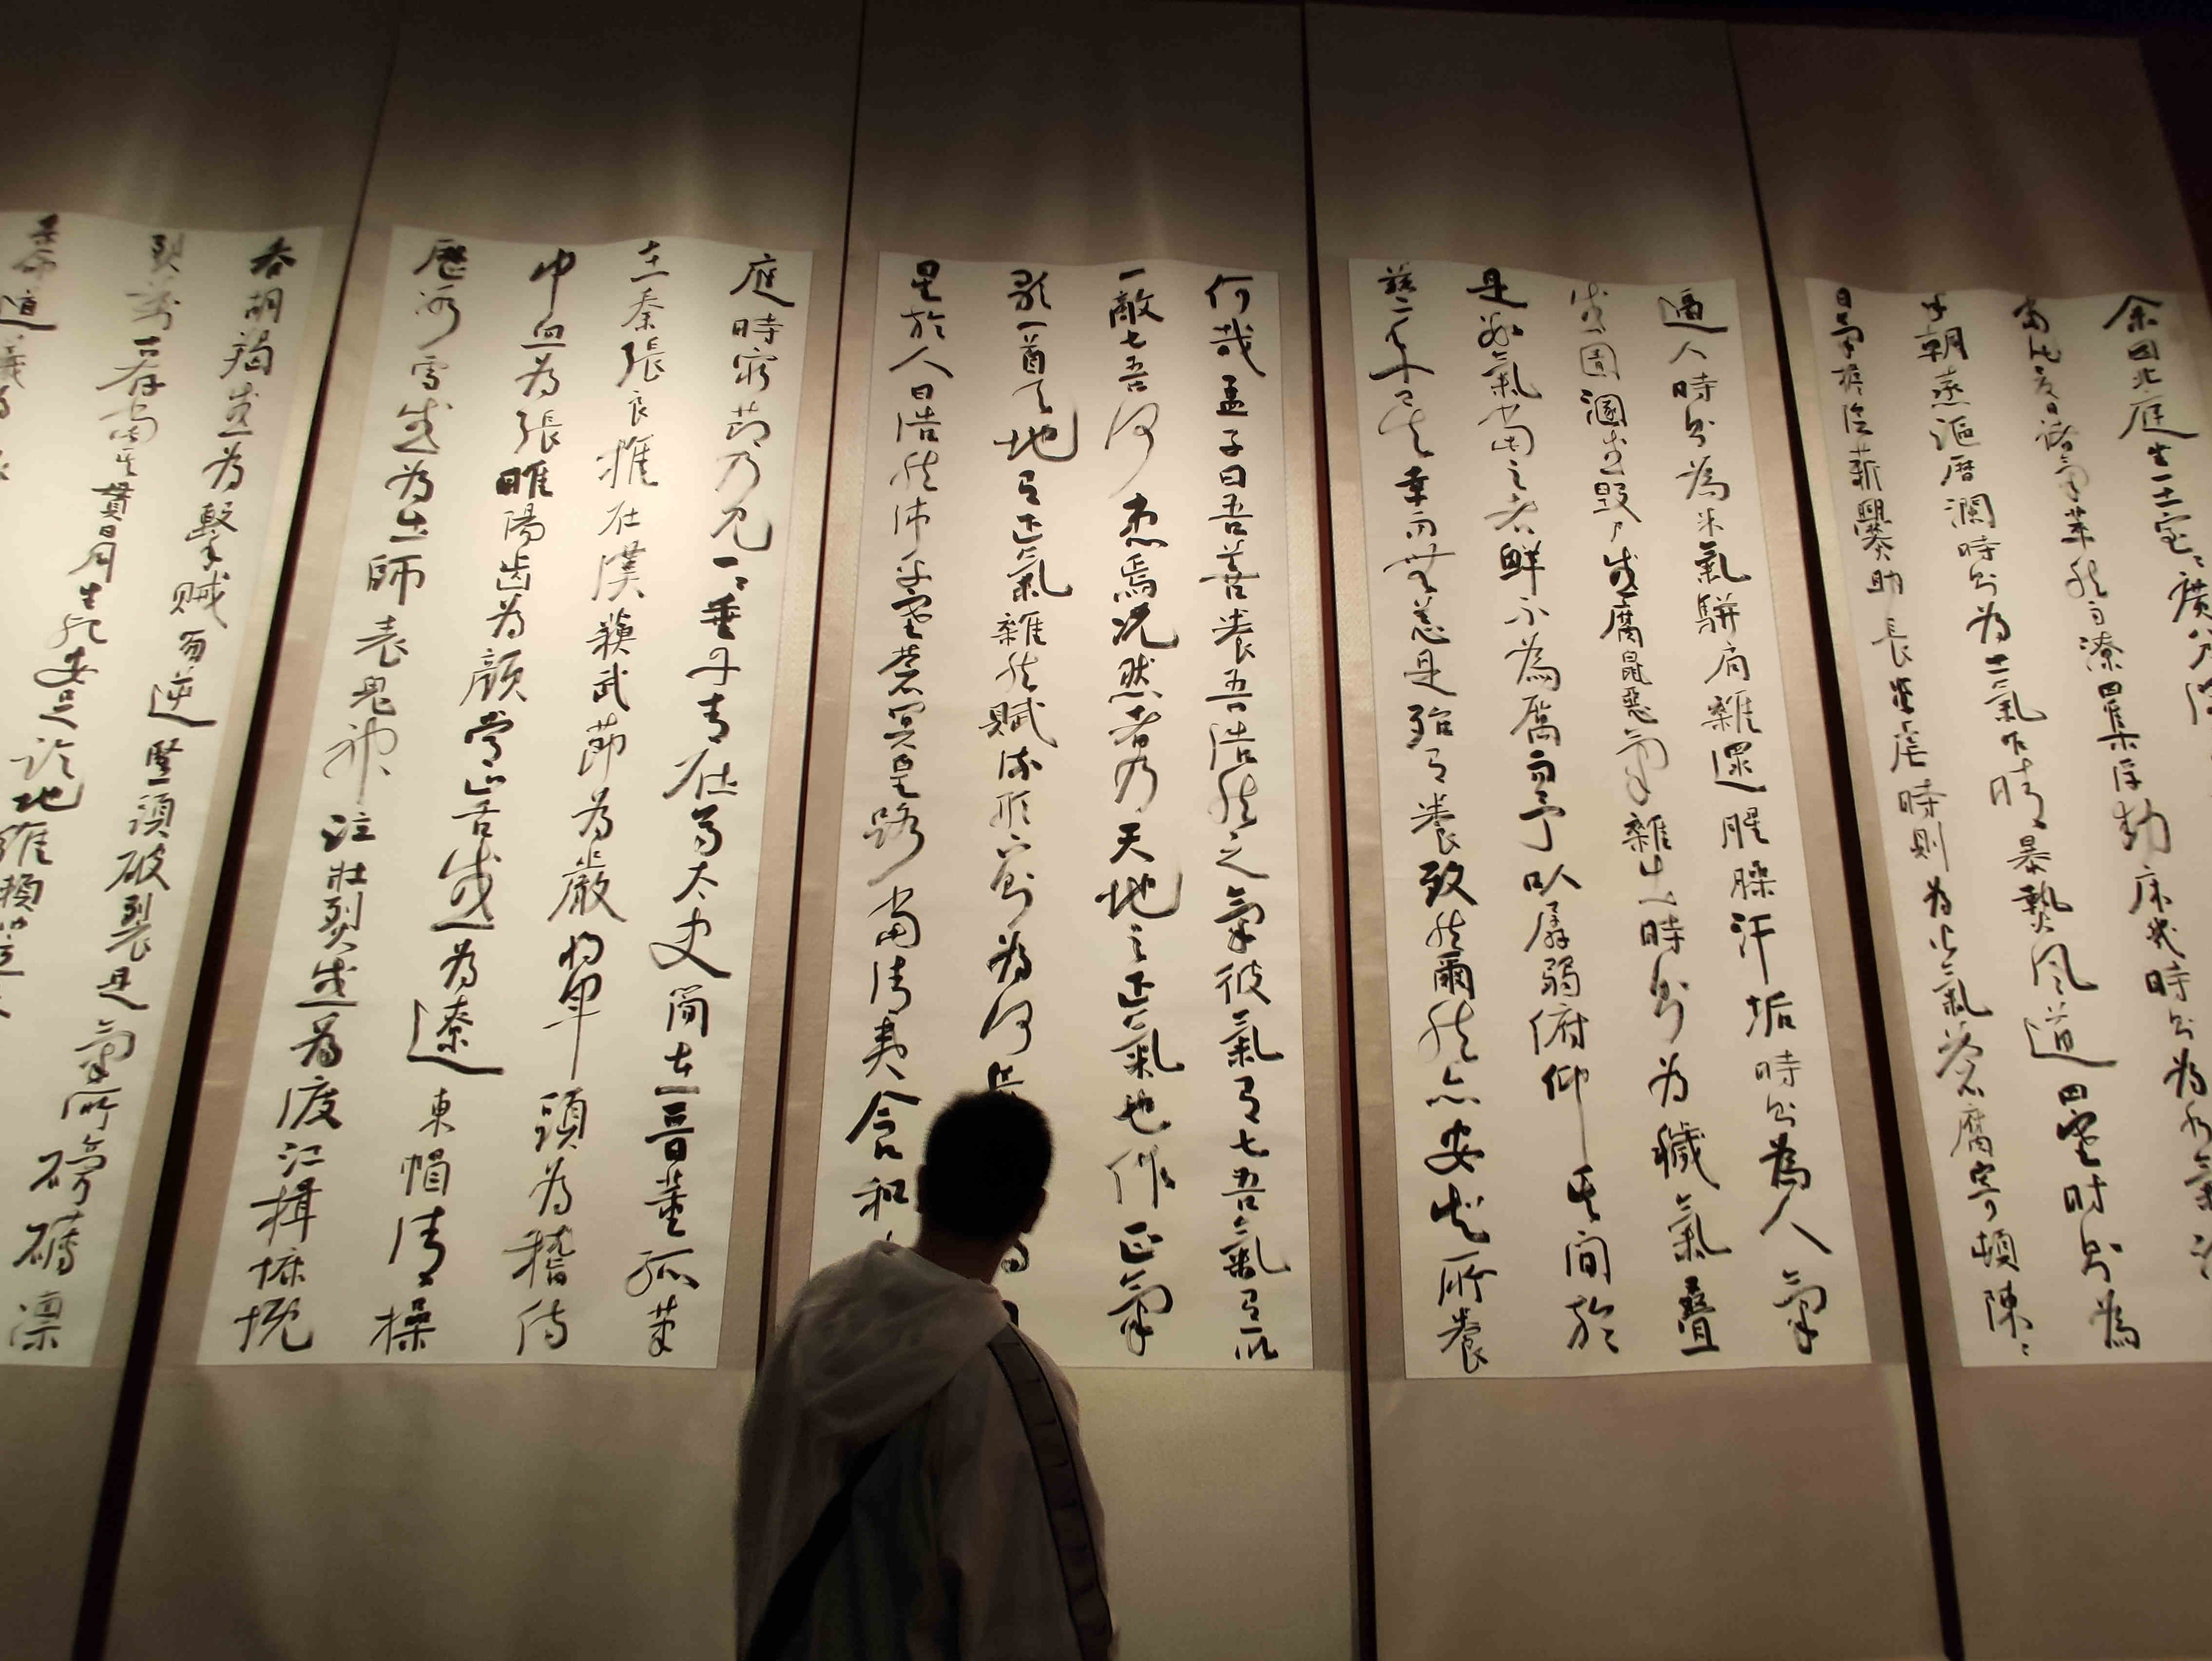 余囚北庭坐一土室〻廣八
當此夏日諸氣萃然雨潦四集浮動床几時則為水氣
半朝蒸漚歷瀾時則為土氣乍晴暴熱風道四塞時則為
日氣簷陰薪爨助長炎虐時則為火氣倉腐寄頓陳〻
逼人時則為米氣駢肩雜遝腥臊汗垢時則為人氣
或圊溷或毀尸或腐鼠惡氣雜出時則為穢氣疊
是數氣當之者鮮不為厲而予以孱弱俯仰其間於
茲二年矣幸而無恙是殆有養致然爾然亦安知所養
何哉孟子曰吾善養吾浩然之氣彼氣有七吾氣有一以
一敵七吾何患焉況然者乃天地之正氣也作正氣
歌一首天地有正氣雜然賦流形下則為河
星於人曰浩然沛乎塞蒼冥皇路當清夷含和
庭時窮節乃見一一垂丹青在齊太史簡在晉董狐筆
在秦張良椎在漢蘇武節為嚴將軍頭為嵇侍
中血為張睢陽齒為顏常山舌或為遼東帽清操
厲冰雪或為出師表鬼神泣壯烈或為渡江楫慷慨
吞胡羯或為擊賊笏逆豎頭破裂是氣所磅礴凜
烈萬古存當其貫日月生死安足論地維賴
尊道義為